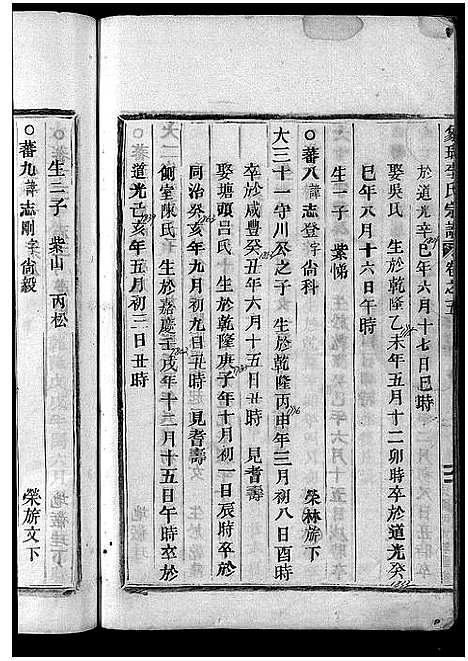 李氏宗譜 卷之五
於道光辛巳年六月十七日巳時
娶吳氏 生於乾隆乙未年五月十二卯時卒於道光癸
巳年八月十六日午時
生一子 紫悌
○蕃八諱志登字尙科 榮林旂下
大三十一守川公之子 生於乾隆丙申年三月初八日酉時
卒於咸豐癸丑年六月十五日丑時 見耆壽
娶塘頭呂氏 生於乾隆庚子年十月初一日辰時卒於
同治癸亥年九月初九日丑時 見耆壽
側室陳氏 生於嘉慶壬戌年十二月十五日午時卒於
道光己亥年五月初二日丑時
生二子 紫山 丙松
○蕃九諱志剛字尙毅 榮旂文下